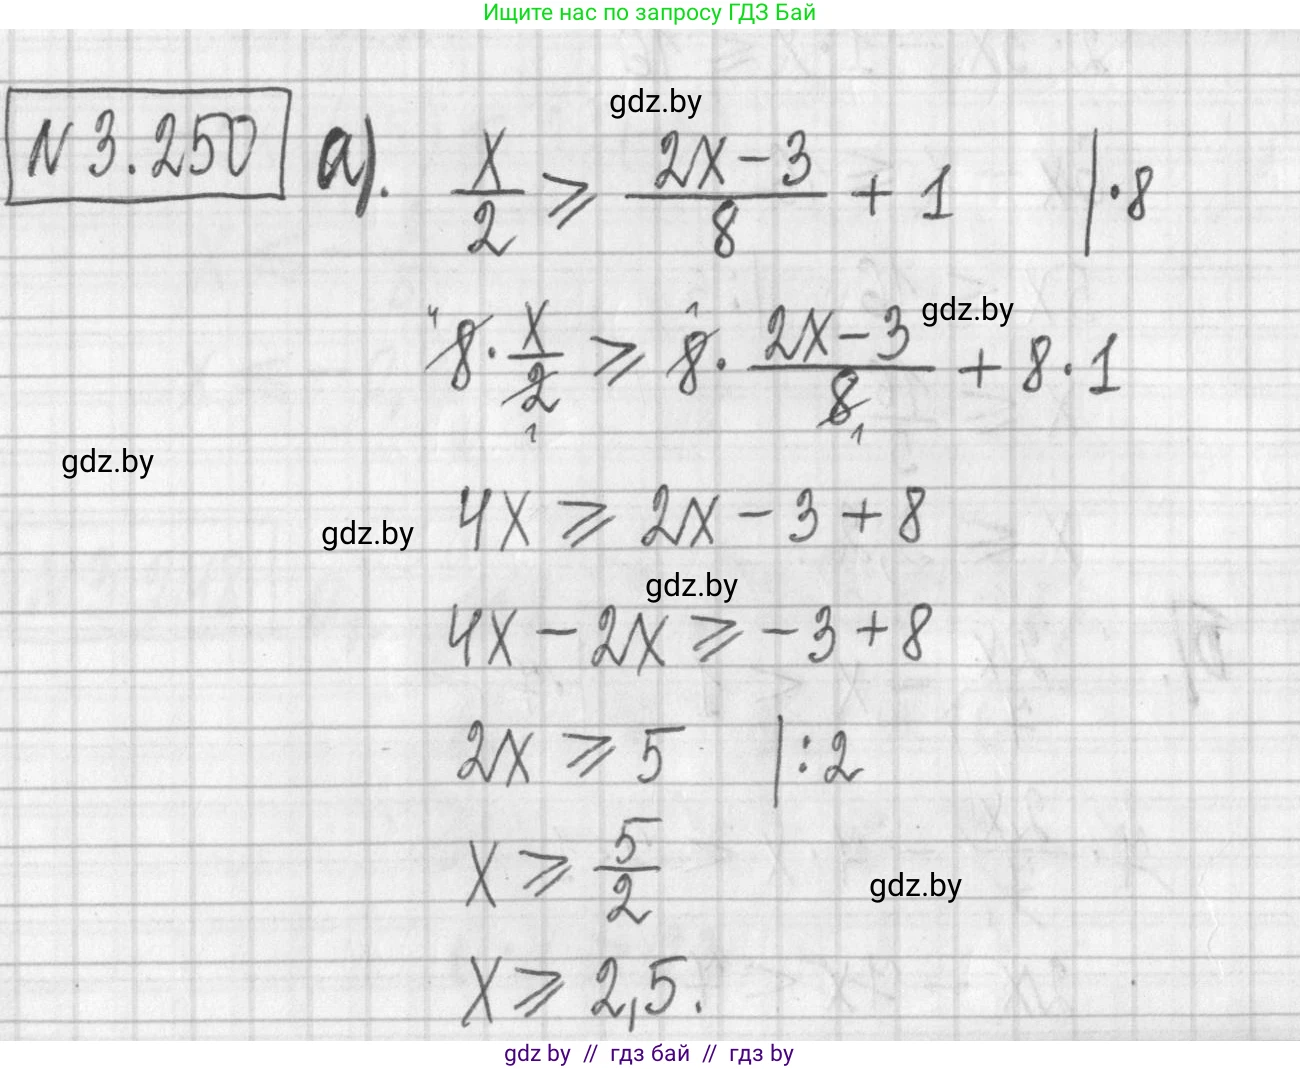 Ищите нас по запросу ГДЗ Бай
gdz.by
N 3.250 а). x/2 ⩾ (2x − 3)/8 + 1 | · 8
gdz.by
4 1
8 · x/2 ⩾ 8 · (2x − 3)/8 + 8 · 1
1 1
gdz.by
4x ⩾ 2x − 3 + 8
gdz.by
gdz.by
4x − 2x ⩾ −3 + 8
2x ⩾ 5 | : 2
x ⩾ 5/2
gdz.by
x ⩾ 2,5.
gdz by // гдз бай // гдз by